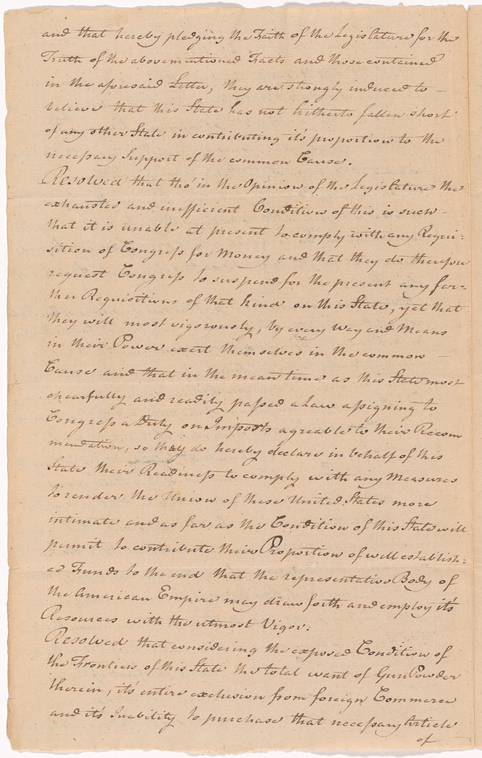 and that hereby pledging the Faith of the Legislature for the
Truth of the abovementioned Facts and those contained
in the aforesaid Letter, they are strongly induced to -
believe that this State has not hitherto fallen short
of any other State in contributing it's proportion to the
necessary Support of the common Cause.
Resolved that tho' in the Opinion of the Legislature the
exhausted and inefficient Condition of this is such
that it is unable at present to comply with any Requi=
sition of Congress for Money and that they do therefore
request Congress to suspend for the present any far=
ther Requisitions of that kind on this State, yet that
they will most vigorously, by every Way and Means
in their Power exert themselves in the common -
Cause and that in the mean time as this State most
chearfully and readily passed a Law assigning to
Congress a Duty on Imposts agreable to their Recom
mendation, so they do hereby declare in behalf of this
State their Readiness to comply with any Measures
to render the Union of these United States more
intimate and as far as the Condition of this State will
permit to contribute their Proportion of well establish=
ed Funds to the end that the representative Body of
the American Empire may draw forth and employ it's
Resources with the utmost Vigor.
Resolved that considering the exposed Condition of
the Frontier of this State the total want of GunPowder
therein, it's entire exclusion from foreign Commerce
and it's Inability to purchase that necessary Article
of